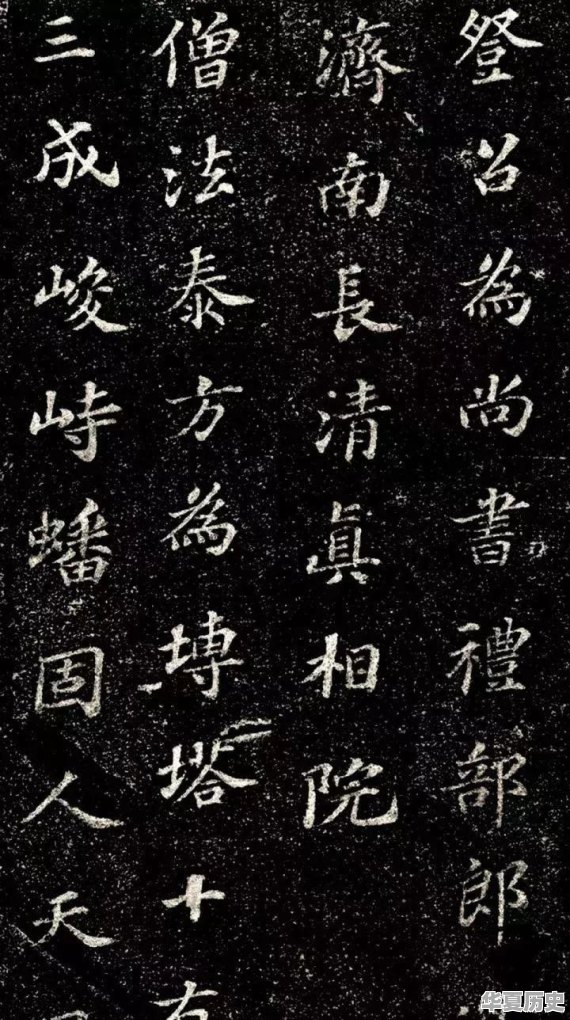 登召為尚書禮部郎
濟南長清真相院
僧法泰方為塼塔十有
三成峻峙蟠固人天
华夏历史